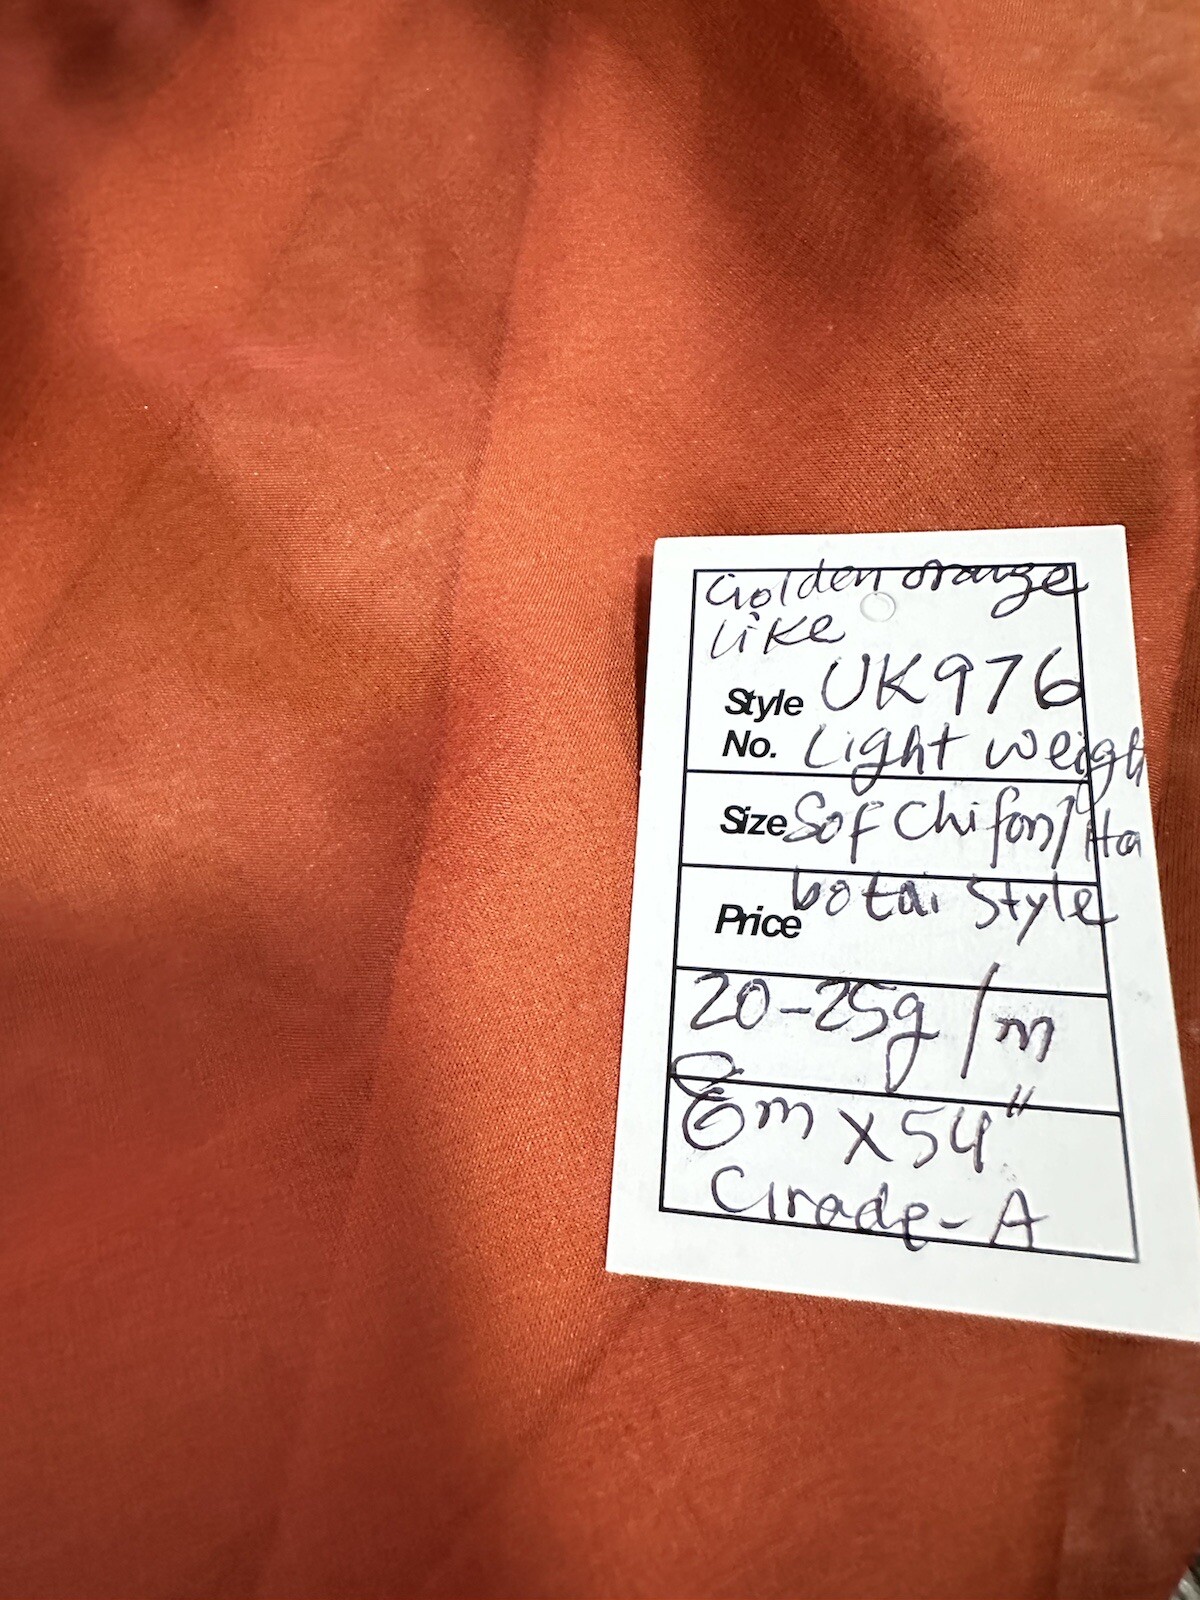 Golden orange
like
Style UK976
No. Light weigh
Size Sof Chifon/Ha
botai Style
Price
20-25g/m
6m x 54"
Grade-A